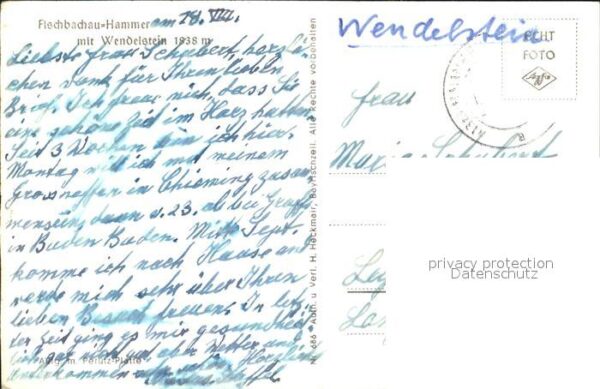 Fischbachau-Hammer am 18. VIII.
mit Wendelstein 1838 m
Liebste Frau Schubert, herzli-
chen Dank für Ihren lieben
Brief. Ich freue mich, dass Sie
eine schöne Zeit im Harz hatten.
Seit 3 Wochen bin ich hier.
Montag will ich mit meinem
Grossneffen in Chieming zusam
mensein, dann v. 23. ab bei
in Baden Baden. Mitte Sept.
komme ich nach Hause und
werde mich sehr über Ihren
lieben Besuch freuen. In letz-
ter Zeit ging es mir gesundheit-
lich gar nicht gut, aber Wetter und
Unterkommen Herzlichst
Aufn. m. Perutz-Platte
Nr. 686 Aufn. u. Verl. H. Heckmair, Bayrischzell. Alle Rechte vorbehalten
Wendelstein
ECHT
FOTO
Agfa
Frau
Maria Schubert
privacy protection
Datenschutz